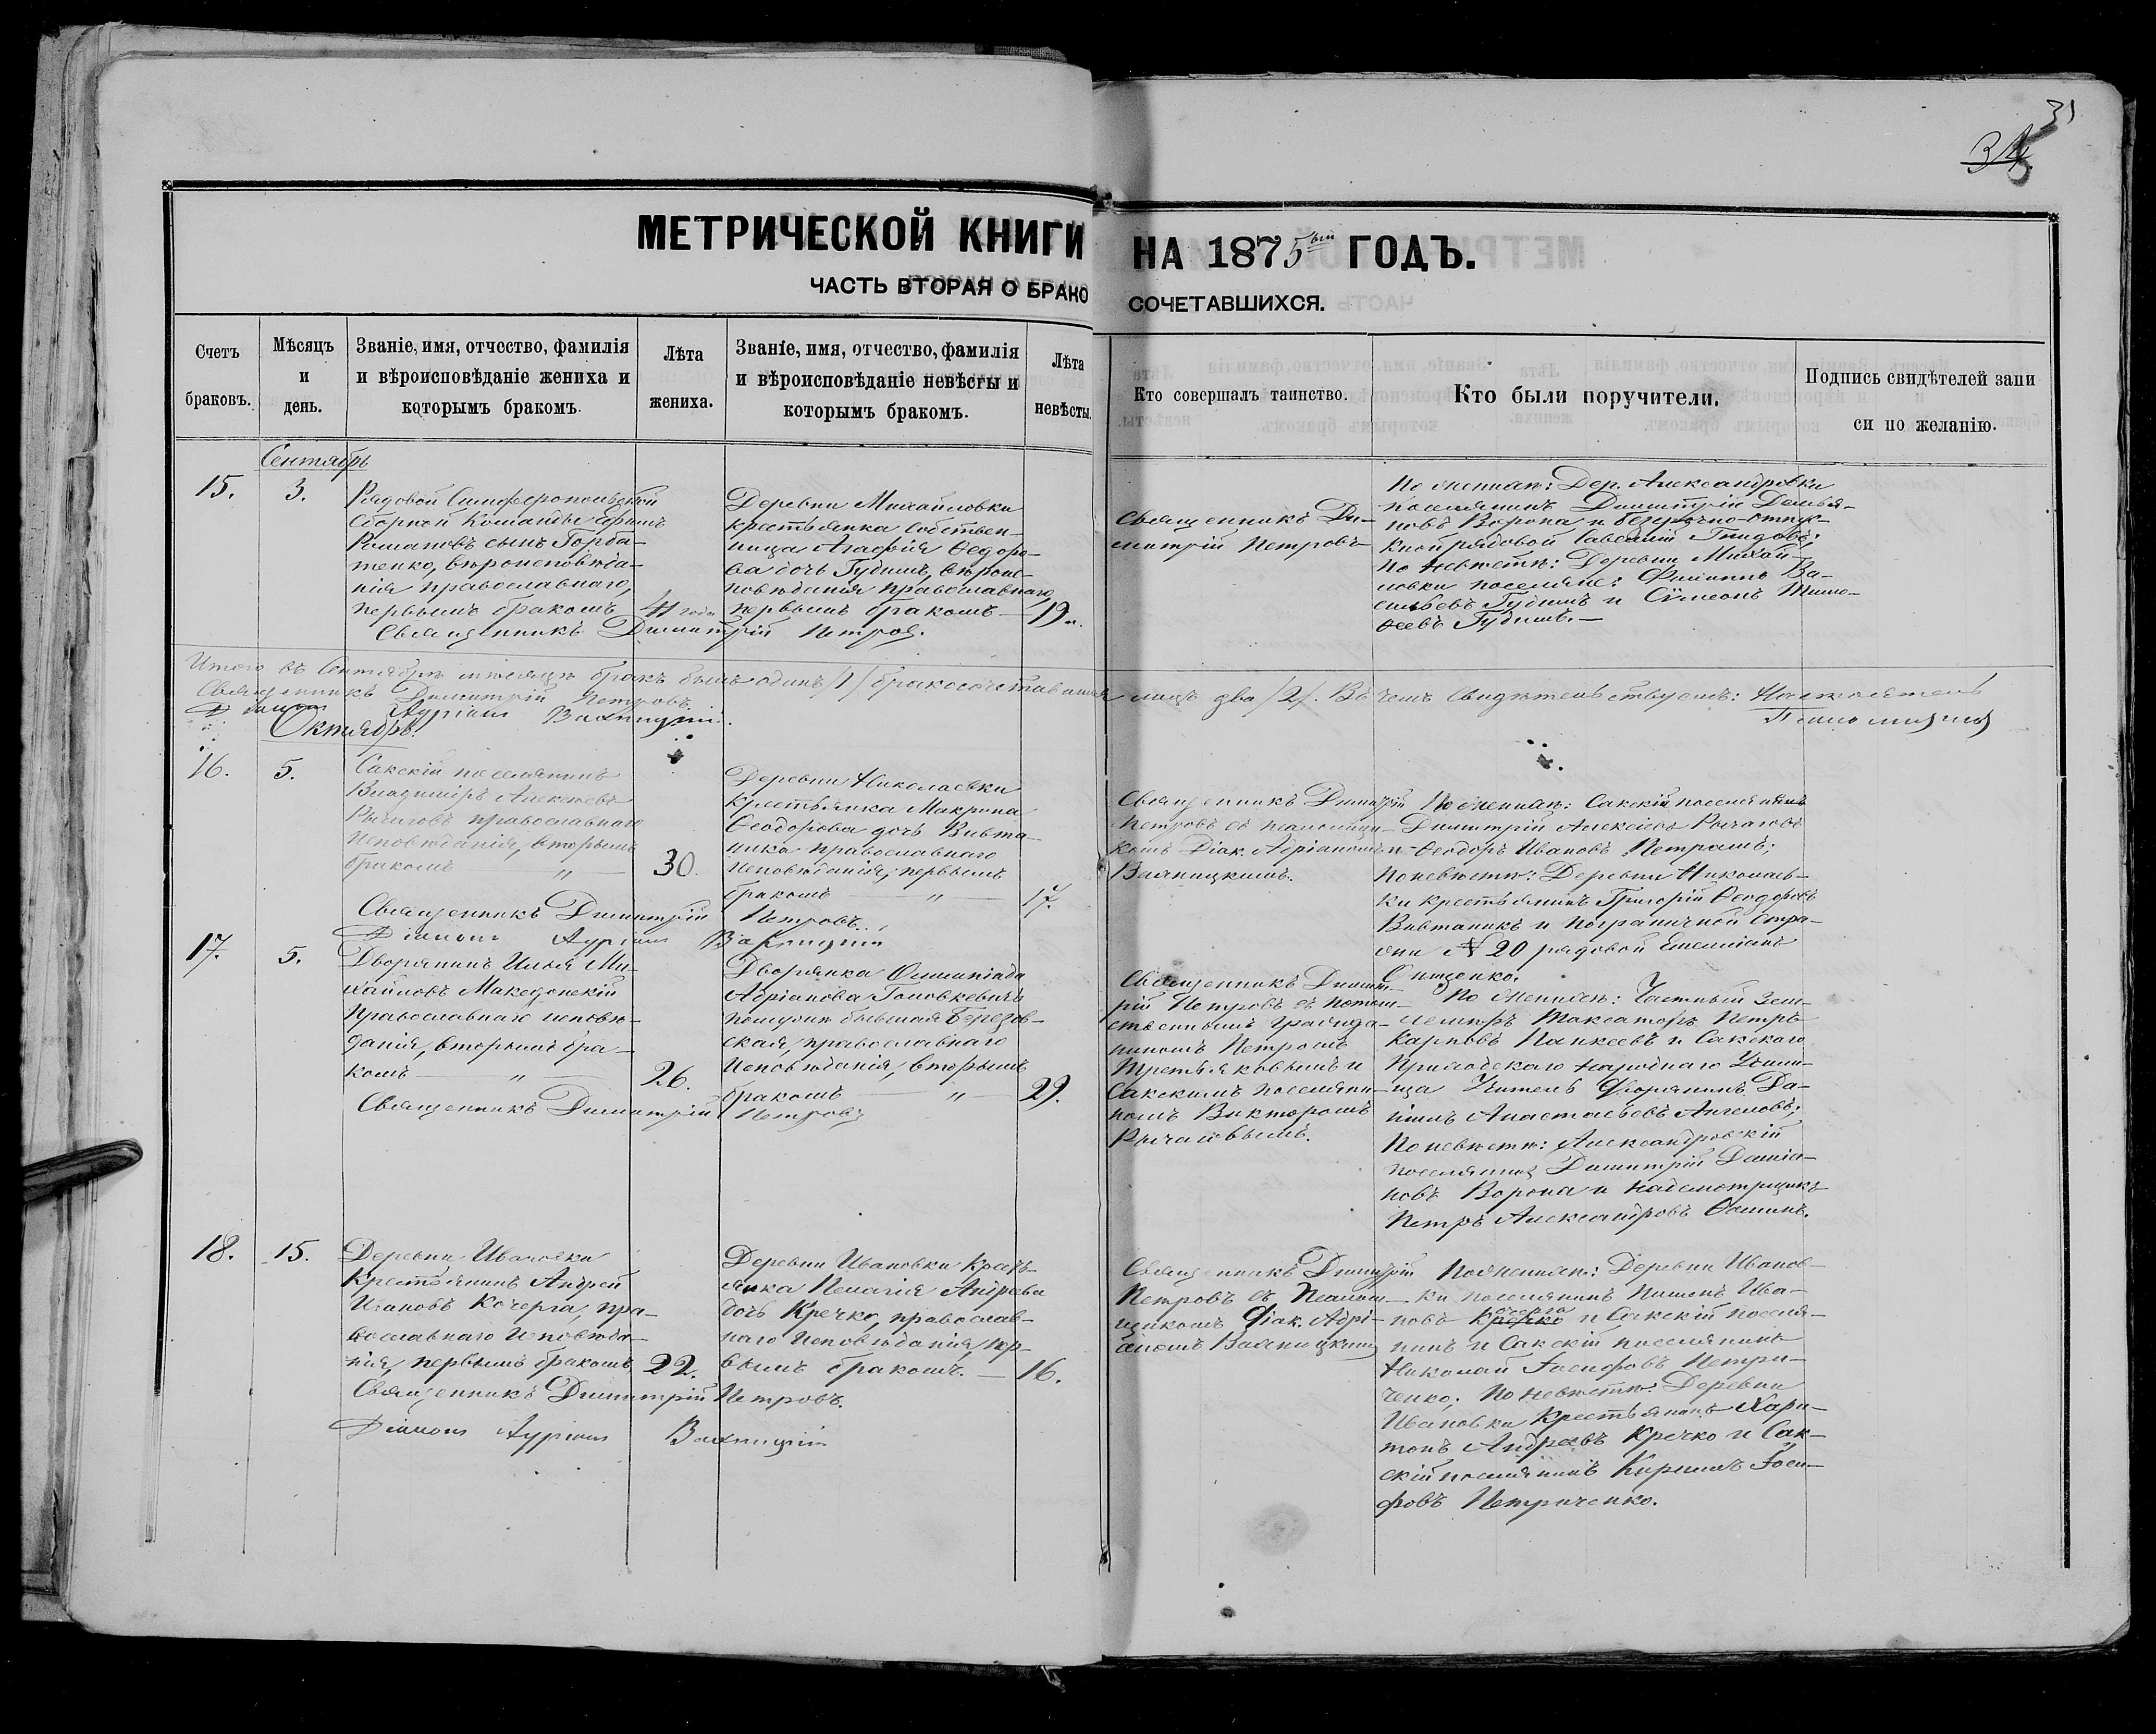 31
34
МЕТРИЧЕСКОЙ КНИГИ НА 1875ый ГОДЪ.
ЧАСТЬ ВТОРАЯ О БРАКОСОЧЕТАВШИХСЯ.
Счетъ браковъ.
Мѣсяцъ и день.
Званіе, имя, отчество, фамилія
и вѣроисповѣданіе жениха и
которымъ бракомъ.
Лѣта жениха.
Званіе, имя, отчество, фамилія
и вѣроисповѣданіе невѣсты и
которымъ бракомъ.
Лѣта невѣсты.
Кто совершалъ таинство.
Кто были поручители.
Подпись свидѣтелей запи
си по желанію.
Сентябрь
15.
3.
Рядовой Симферопольской
Сборной Команды Ефимъ
Романовъ сынъ Горба-
тенко, вѣроисповѣда-
нія православнаго,
первымъ бракомъ
41 года
Деревни Михайловки
крестьянка собствен-
ница Агафія Ѳедоро-
ва дочь Гудимъ, вѣроис-
повѣданія православнаго,
первымъ бракомъ —
19.
Священникъ Ди-
митрій Петровъ
По женихѣ: Дер. Александровки
поселянинъ Димитрій Демья-
новъ Ворона и безсрочно-отпус-
кной рядовой Савелій
По невѣстѣ: Деревни Михай-
ловки поселяне: Филиппъ Ва-
сильевъ Гудимъ и Сѵмеонъ Тимо-
ѳеевъ Гудимъ. —
Священникъ Димитрій Петровъ.
Итого въ Сентябрѣ мѣсяцѣ бракъ былъ одинъ /1/ бракосочетавшихся лицъ два /2/. Въ чемъ свидѣтельствуемъ: Настоятель
Священникъ Димитрій Петровъ.
Діаконъ Адріанъ Вахницкій.
Октябрь.
16.
5.
Сакскій поселянинъ
Владиміръ Алексѣевъ
Рычаговъ православнаго
исповѣданія, вторымъ
бракомъ — " —
30.
Деревни Николаевки
крестьянка Макрина
Ѳеодорова дочь Вивта-
ника православнаго
исповѣданія, первымъ
бракомъ — " —
17.
Священникъ Димитрій
Петровъ съ псаломщи-
комъ Діак. Адріаномъ
Вахницкимъ.
По женихѣ: Сакскій поселянинъ
Димитрій Алексѣевъ Рычаговъ
и Ѳеодоръ Ивановъ Петрашъ;
По невѣстѣ: Деревни Николаев-
ки крестьянинъ Григорій Ѳеодоровъ
Вивтаникъ и Пограничной Стра-
жи № 20 рядовой Емелианъ
Онищенко.
Священникъ Димитрій Петровъ.
Діаконъ Адріанъ Вахницкій
17.
5.
Дворянинъ Илья Ми-
хайловъ Македонскій
православнаго исповѣ-
данія, вторымъ бра-
комъ — " —
26.
Дворянка Олимпіада
Адріанова Головкевичъ
по мужу бывшая Березов-
ская, православнаго
исповѣданія, вторымъ
бракомъ — " —
29.
Священникъ Димит-
рій Петровъ съ потом-
ственнымъ гражда-
ниномъ Петромъ
Третьяковымъ и
Сакскимъ поселяни-
номъ Викторомъ
Рычаговымъ.
По женихѣ: Частный Зем-
лемѣръ Таксаторъ Петръ
Карповъ Папкеевъ и Сакскаго
Приходскаго Народнаго Учили-
ща Учитель Дворянинъ Да-
ніилъ Анастасьевъ Ангеловъ;
По невѣстѣ: Александровскій
поселянинъ Димитрій Даміа-
новъ Ворона и надсмотрщикъ
Петръ Александровъ Ѳоминъ.
Священникъ Димитрій Петровъ
18.
15.
Деревни Ивановки
Крестьянинъ Андрей
Ивановъ Кочерга, пра-
вославнаго исповѣда-
нія, первымъ бракомъ
22.
Деревни Ивановки Кресть-
янка Пелагія Андреева
дочь Кречко, православ-
наго исповѣданія, пер-
вымъ бракомъ. —
16.
Священникъ Димитрій
Петровъ съ Псалом-
щикомъ Діак. Адрі-
аномъ Вахницкимъ
По женихѣ: Деревни Иванов-
ки поселянинъ Пименъ Ива-
новъ Кочерга и Сакскій поселя-
нинъ и Сакскій поселянинъ
Николай Іосифовъ Петри-
ченко; По невѣстѣ: Деревни
Ивановки Крестьянинъ Хари-
тонъ Андреевъ Кречко и Сак-
скій поселянинъ Кириллъ Іоси-
фовъ Петриченко.
Священникъ Димитрій Петровъ.
Діаконъ Адріанъ Вахницкій